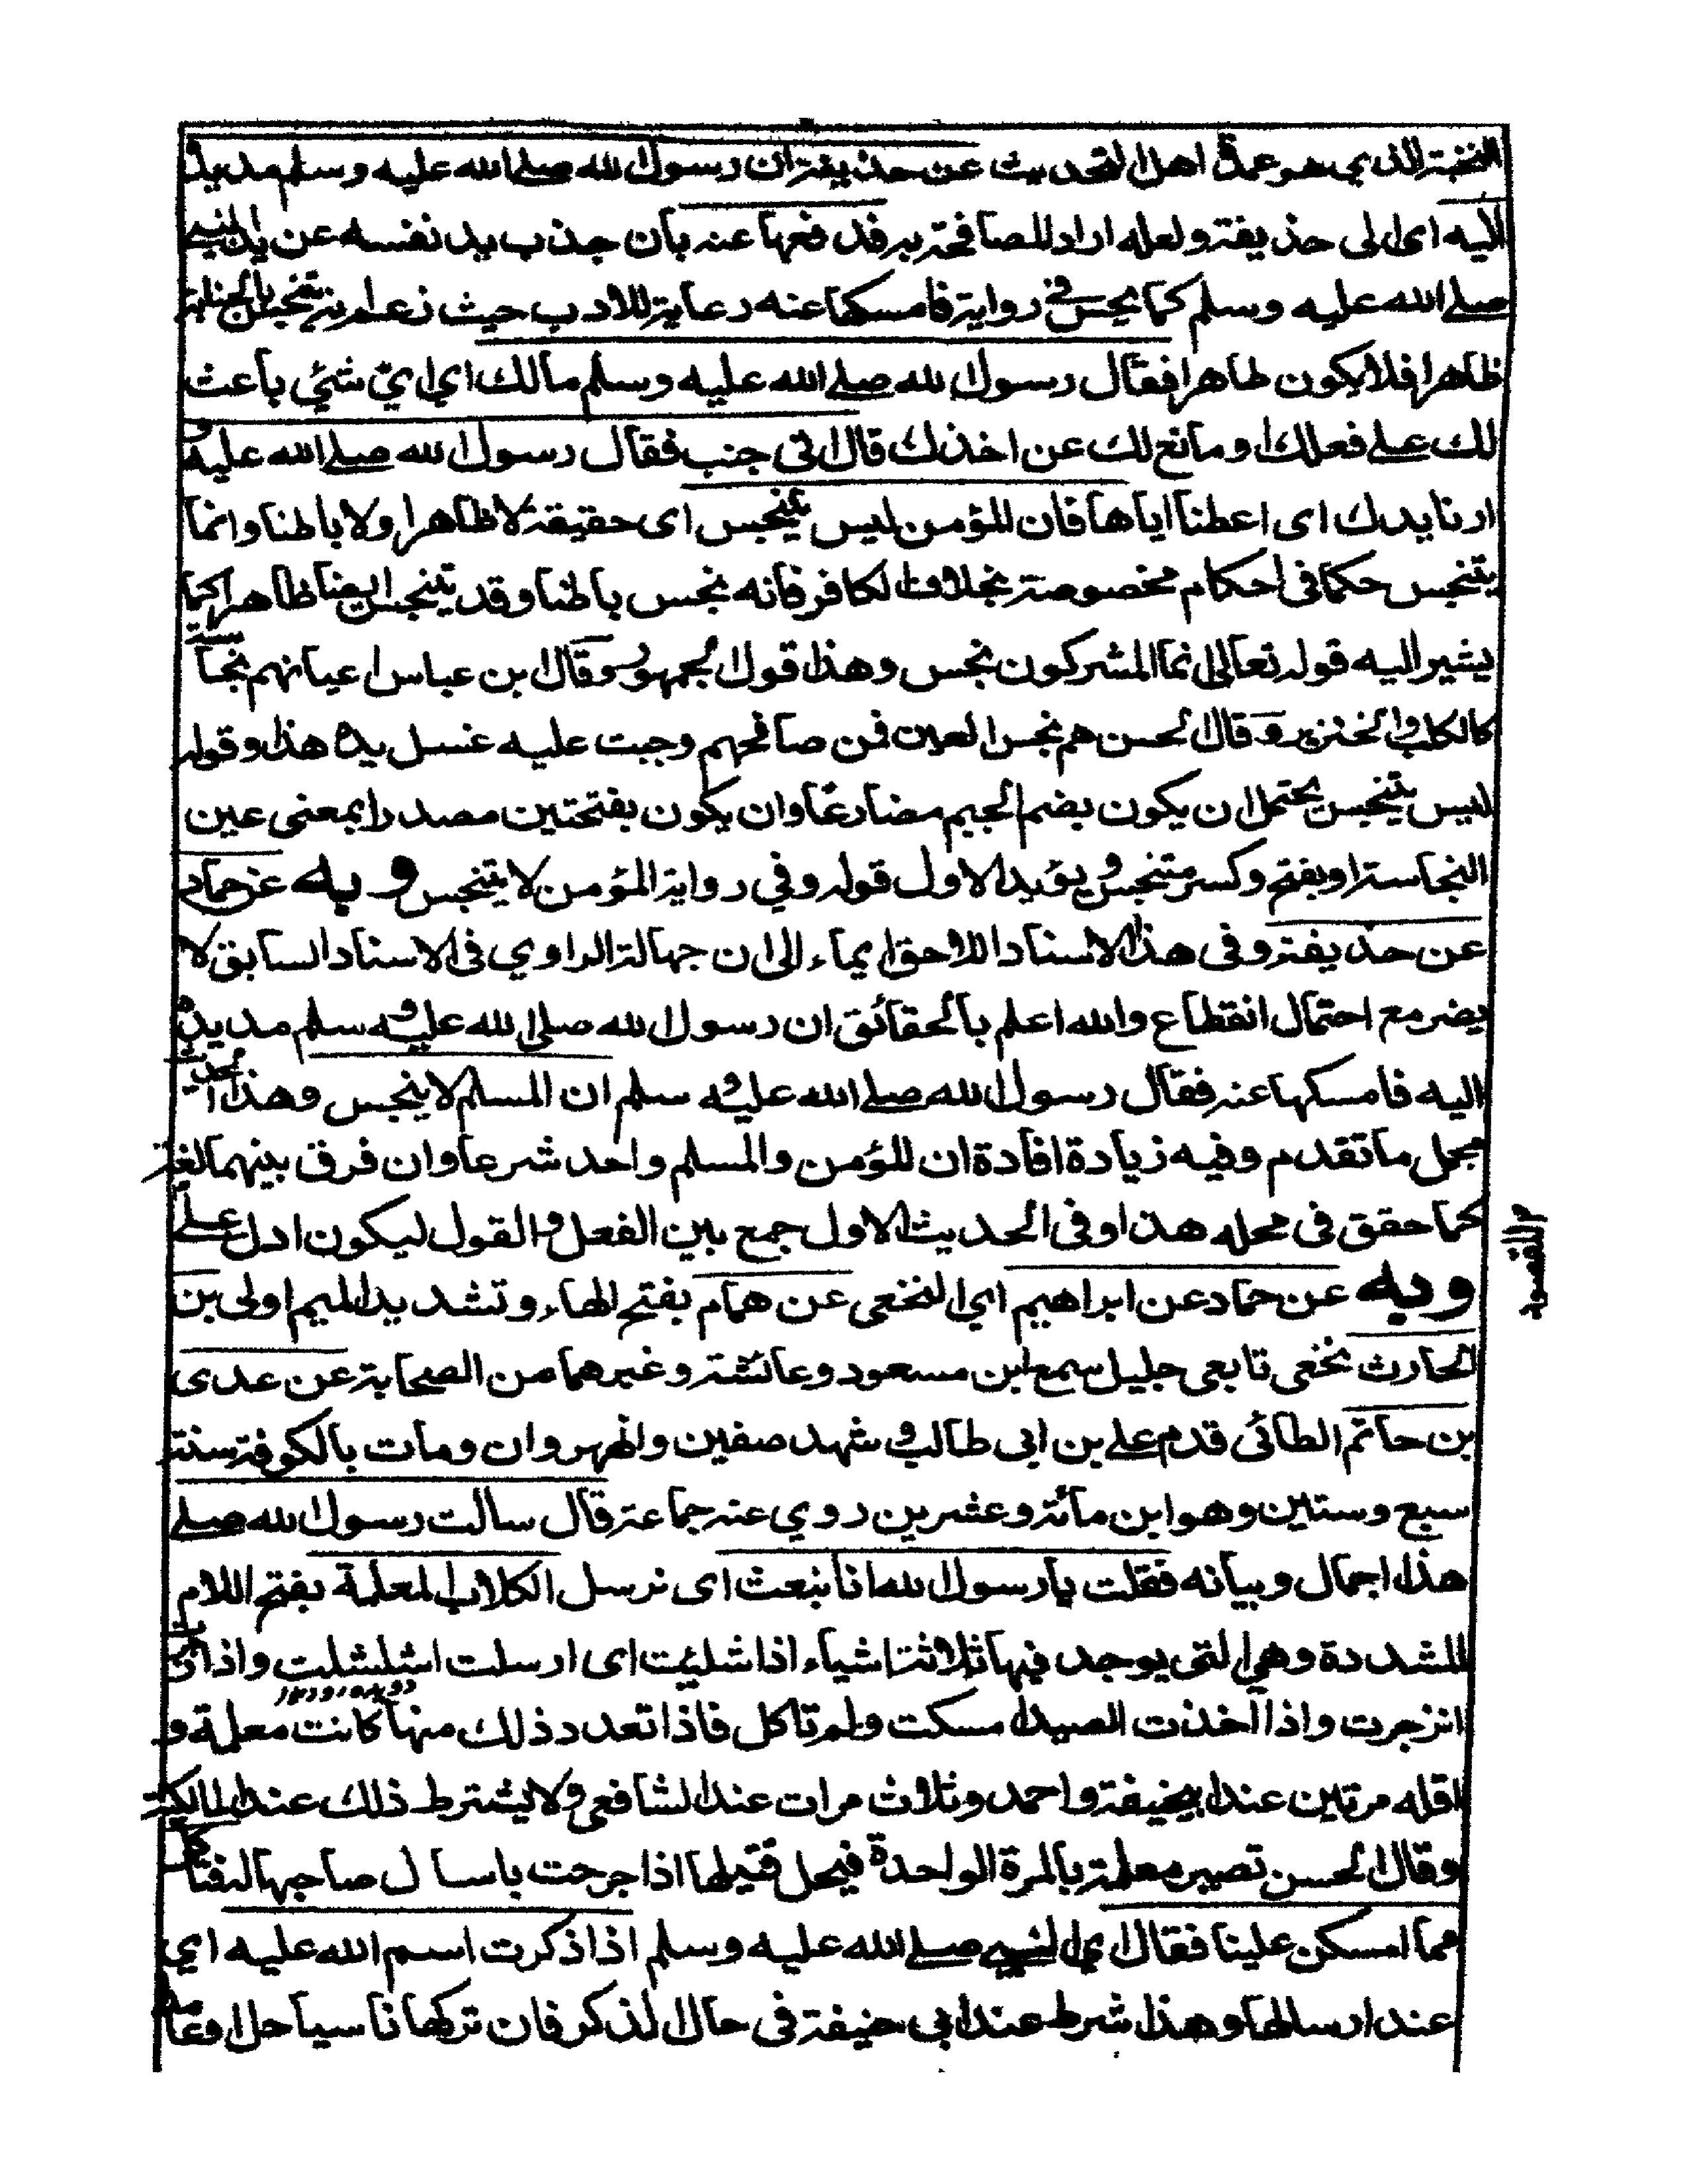 النخبة الذي هو عمدة اهل التحديث عن حذيفة ان رسول الله صلى الله عليه وسلم مد يده
اليه اى الى حذيفة ولعله اراد المصافحة به فدفعها عنه بان جذب يد نفسه عن يد النبي
صلى الله عليه وسلم كما يحس في رواية فامسكها عنه رعاية للادب حيث زعم انه يتنجس بالجنابة
ظاهرا فلا يكون طاهرا فقال رسول الله صلى الله عليه وسلم مالك اي اي شئي باعث
لك على فعلك او مانع لك عن اخذك قال اني جنب فقال رسول الله صلى الله عليه و
ارنا يدك اى اعطنا اياها فان المؤمن ليس ينجس اى حقيقة لا ظاهرا ولا باطنا وانما
يتنجس حكما فى احكام مخصوصة بخلاف الكافر فانه نجس باطنا وقد يتنجس ايضا ظاهرا كما
يشير اليه قوله تعالى انما المشركون نجس وهذا قول الجمهور وقال ابن عباس اعيانهم نجسة
كالكلب والخنزير وقال الحسن هم نجس العين فمن صافحهم وجبت عليه غسل يده هذا وقوله
ليس يتنجس يحتمل ان يكون بضم الجيم مضارعا وان يكون بفتحتين مصدرا بمعنى عين
النجاسة او بفتح وكسر متنجس ويؤيد الاول قوله وفي رواية المؤمن لا يتنجس وبه عن حماد
عن حذيفة وفى هذا الاسناد اللاحق ايماء الى ان جهالة الراوي فى الاسناد السابق لا
يضر مع احتمال انقطاع والله اعلم بالحقائق ان رسول الله صلى الله عليه وسلم مد يده
اليه فامسكها عنه فقال رسول الله صلى الله عليه وسلم ان المسلم لا ينجس وهذا الحديث
مجمل ما تقدم وفيه زيادة افادة ان المؤمن والمسلم واحد شرعا وان فرق بينهما لغة
كما حقق فى محله هذا وفى الحديث الاول جمع بين الفعل والقول ليكون ادل على
والمقصود
وبه عن حماد عن ابراهيم اي النخعى عن همام بفتح الهاء وتشديد الميم اولى بن
الحارث نخعى تابعى جليل سمع ابن مسعود وعائشة وغيرهما من الصحابة عن عدى
بن حاتم الطائى قدم على بن ابى طالب وشهد صفين والنهروان ومات بالكوفة سنة
سبع وستين وهو ابن مائة وعشرين روي عنه جماعة قال سالت رسول الله صلى
هذا اجمال وبيانه فقلت يا رسول الله انا نبعث اى نرسل الكلاب المعلمة بفتح اللام
المشددة وهي التى يوجد فيها ثلاثة اشياء اذا شليت اى ارسلت اشلشلت واذا
انزجرت واذا اخذت الصيد امسكت ولم تاكل فاذا تعدد ذلك منها كانت معلمة و
اقله مرتين عند ابيحنيفة واحمد وثلاث مرات عند الشافعى ولا يشترط ذلك عند المالكية
وقال الحسن تصير معلمة بالمرة الواحدة فيحل قتيلها اذا جرحت بارسال صاحبها افناكل
مما امسكن علينا فقال اي النبي صلى الله عليه وسلم اذا ذكرت اسم الله عليه اي
عند ارسالها وهذا شرط عند ابى حنيفة فى حال الذكر فان تركها ناسيا حل او عامدا